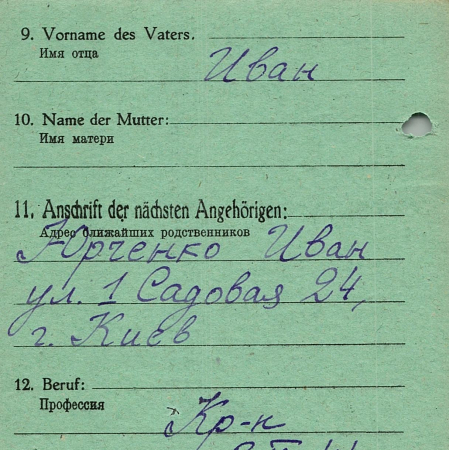 9. Vorname des Vaters.
Имя отца
Иван
10. Name der Mutter:
Имя матери
11. Anschrift der nächsten Angehörigen:
Адрес ближайших родственников
Юрченко Иван
ул. 1 Садовая 24,
г. Киев
12. Beruf:
Профессия
Кр-н